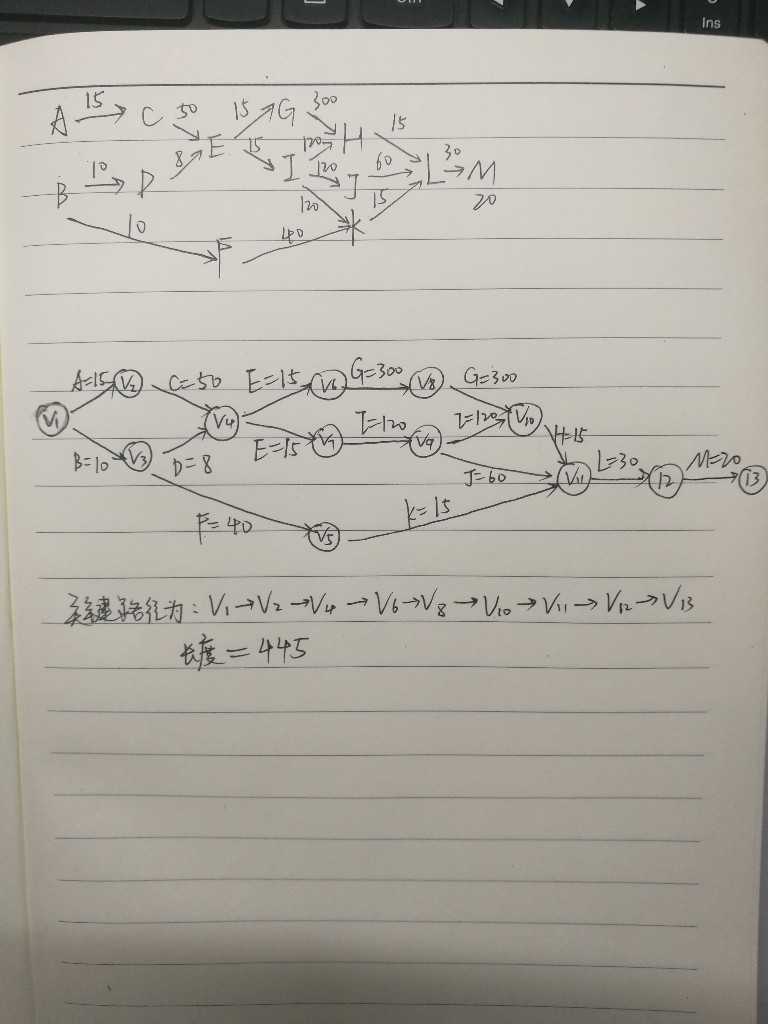 Ins
A 15 C 50 E 15 G 300 H 15
B 10 D 8 15 I 120 120 J 60 L 30 M
20
10 F 40 120 K 15
A=15 V2 C=50 E=15 V6 G=300 V8 G=300
V1 V4 V10
B=10 V3 D=8 E=15 V7 I=120 V9 I=120 H=15
J=60 V11 L=30 12 M=20 13
F=40 V5 K=15
关键路径为: V1→V2→V4→V6→V8→V10→V11→V12→V13
长度=445